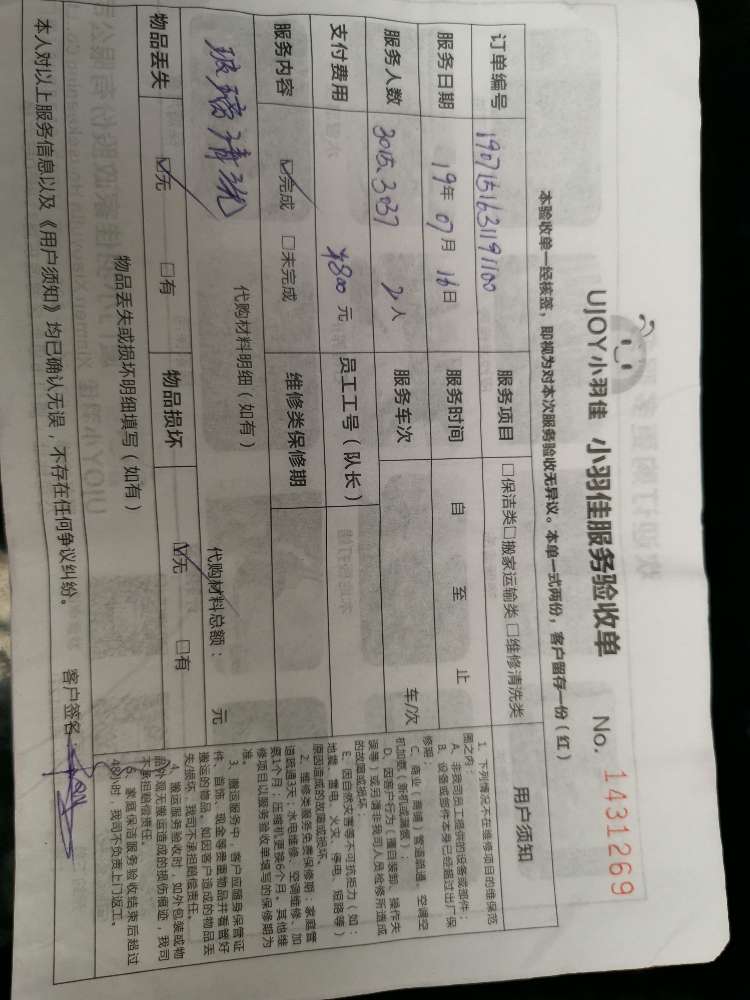 UJOY小羽佳 小羽佳服务验收单 No. 1431269
本验收单一经核签，即视为对本次服务验收无异议。本单一式两份，客户留存一份（红）
订单编号 1907151631191100 服务项目 □保洁类□搬家运输类□维修清洗类
服务日期 19年 07月 16日 服务时间 自 至 止
服务人数 3015.3037 2人 服务车次 车/次
支付费用 ¥800 元 员工工号（队长）
服务内容 ☑完成 □未完成 维修类保修期
玻璃清洗
代购材料明细（如有） 代购材料总额： 元
物品丢失 ☑无 □有 物品损坏 ☑无 □有
物品丢失或损坏明细填写（如有）
本人对以上服务信息以及《用户须知》均已确认无误，不存在任何争议纠纷。
客户签名：
用户须知
1、下列情况不在维修项目的维保范
围之内：
A、非我司员工提供的设备或部件；
B、设备或部件本身已经超过出厂保
修期；
C、商业（商铺）管道疏通、空调空
机加氨（新机或漏氨）；
D、因客户行为（擅自装卸、操作失
误等）或另请非我司人员检修所造成
的故障或损坏
E、因自然灾害等不可抗拒力（如：
地震、雷电、火灾、停电、短路等）
原因造成的故障或损坏。
2、维修类服务免费保修期：家庭管
道疏通3天；水电维修、空调维修、加
氨1个月；压缩机更换6个月。其他维
修项目以服务验收单填写的保修期为
准。
3、搬运服务中，客户应随身保管证
件、首饰、现金等贵重物品并看管好
搬运的物品。如因客户造成的物品丢
失/损坏，我司不承担赔偿责任。
4、搬运服务验收时，如外包装或物
品外观无搬运造成的损伤痕迹，我司
不承担赔偿责任。
5、家庭保洁服务验收结束后超过
48小时，我司不负责上门返工。